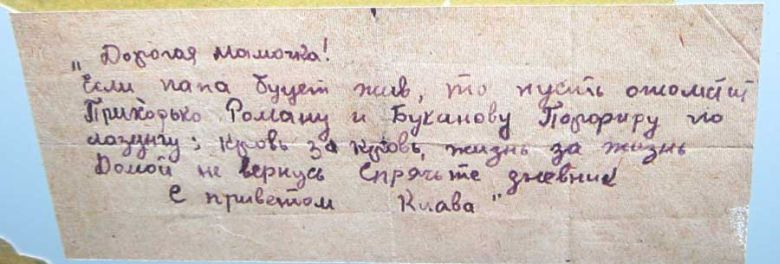 „Дорогая мамочка!
Если папа будет жив, то пусть отомстит
Приходько Роману и Буханову Порфиру по
лозунгу; кровь за кровь, жизнь за жизнь
Домой не вернусь Спрячьте дневник
С приветом Клава"